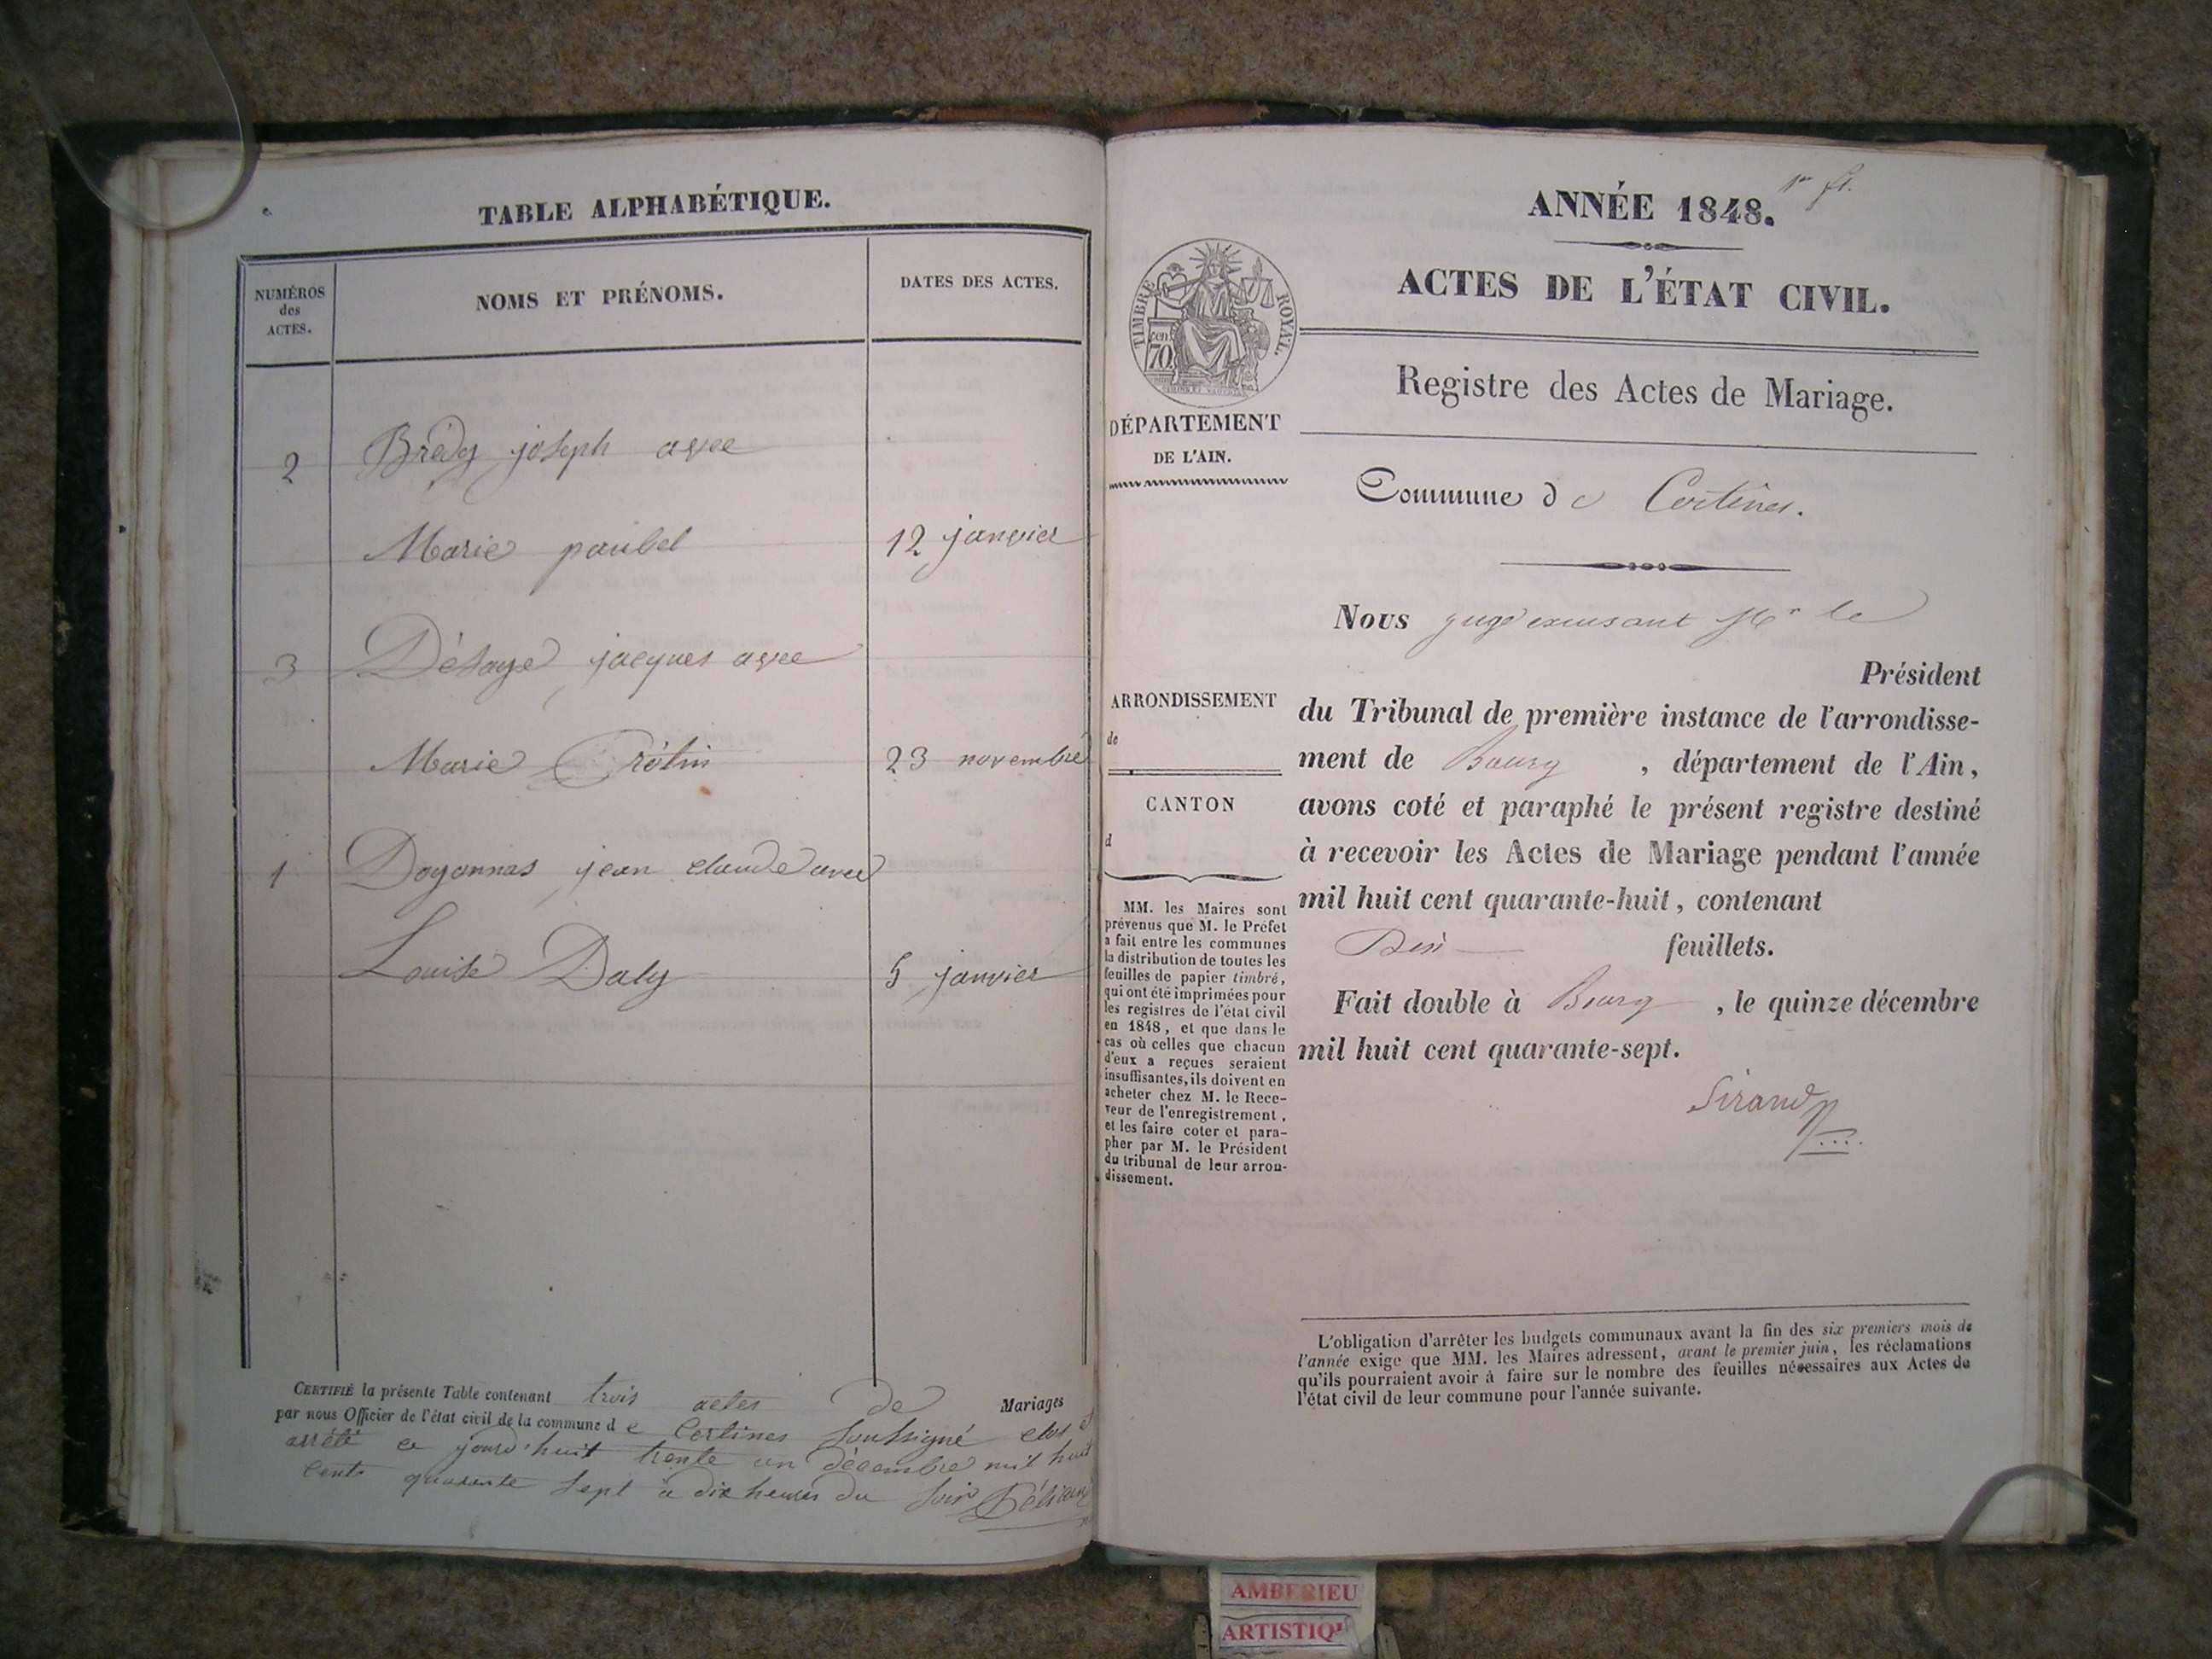 TABLE ALPHABÉTIQUE.
NUMÉROS
des
ACTES.
NOMS ET PRÉNOMS.
DATES DES ACTES.
2 Brédy joseph avec
Marie paubel 12 janvier
3 Désayé jacques avec
Marie Crétin 23 novembre
1 Doyonnas jean claude avec
Louise Daly 5 janvier
CERTIFIÉ la présente Table contenant trois actes de Mariages
par nous Officier de l'état civil de la commune de Certines soussigné clos et
arrêté ce jourd'huit trente un décembre mil huit
cents quarante sept à dix heures du soir
1er ft.
ANNÉE 1848.
ACTES DE L'ÉTAT CIVIL.
TIMBRE ROYAL.
cen
70.
Registre des Actes de Mariage.
DÉPARTEMENT
DE L'AIN.
Commune de Certines.
Nous juge exerçant Mr le
Président
ARRONDISSEMENT
de
CANTON
d
du Tribunal de première instance de l'arrondisse-
ment de Bourg , département de l'Ain,
avons coté et paraphé le présent registre destiné
à recevoir les Actes de Mariage pendant l'année
mil huit cent quarante-huit, contenant
feuillets.
Fait double à Bourg , le quinze décembre
mil huit cent quarante-sept.
Sirand
MM. les Maires sont
prévenus que M. le Préfet
a fait entre les communes
la distribution de toutes les
feuilles de papier timbré,
qui ont été imprimées pour
les registres de l'état civil
en 1848, et que dans le
cas où celles que chacun
d'eux a reçues seraient
insuffisantes, ils doivent en
acheter chez M. le Rece-
veur de l'enregistrement,
et les faire coter et para-
pher par M. le Président
du tribunal de leur arron-
dissement.
L'obligation d'arrêter les budgets communaux avant la fin des six premiers mois de
l'année exige que MM. les Maires adressent, avant le premier juin, les réclamations
qu'ils pourraient avoir à faire sur le nombre des feuilles nécessaires aux Actes de
l'état civil de leur commune pour l'année suivante.
AMBERIEU
ARTISTIQ